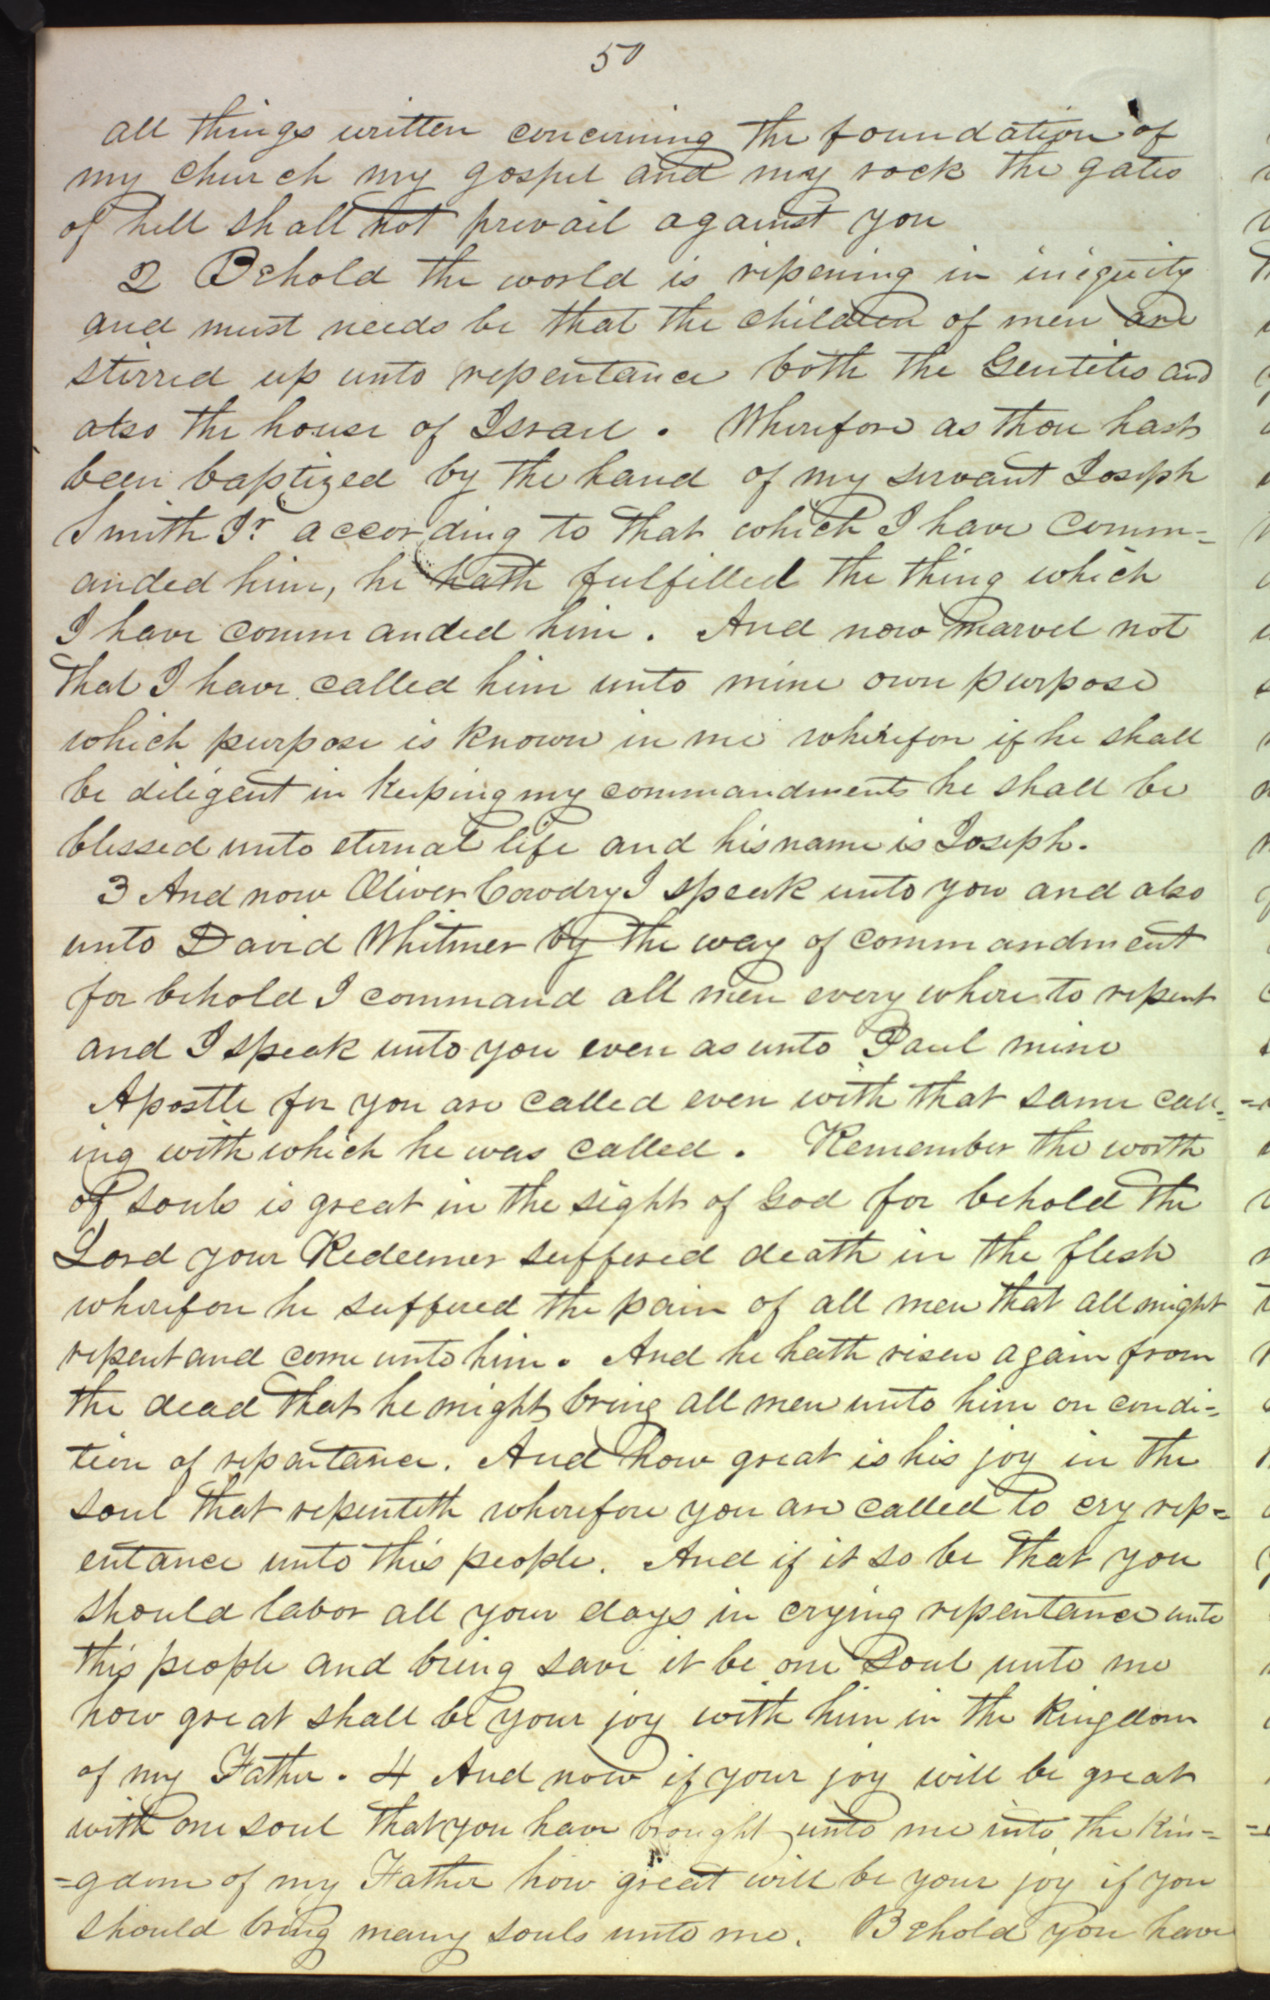 50
all things written concerning the foundation of
my church my gospel and my rock the gates
of hell shall not prevail against you
2 Behold the world is ripening in iniquity
and must needs be that the children of men are
stirred up unto repentance both the Gentiles and
also the house of Israel. Wherefore as thou hast
been baptized by the hand of my servant Joseph
Smith Jr. according to that which I have comm=
anded him, he hath fulfilled the thing which
I have commanded him. And now marvel not
that I have called him unto mine own purpose
which purpose is known in me wherefore if he shall
be diligent in keeping my commandments he shall be
blessed unto eternal life and his name is Joseph.
3 And now Oliver Cowdry I speak unto you and also
unto David Whitmer by the way of commandment
for behold I command all men every where to repent
and I speak unto you even as unto Paul mine
Apostle for you are called even with that same call=
ing with which he was called. Remember the worth
of souls is great in the sight of God for behold the
Lord your Redeemer suffered death in the flesh
wherefore he suffered the pain of all men that all might
repent and come unto him. And he hath risen again from
the dead that he might bring all men unto him on condi=
tion of repentance. And how great is his joy in the
soul that repenteth wherefore you are called to cry rep=
entance unto this people. And if it so be that you
should labor all your days in crying repentance unto
this people and bring save it be one soul unto me
how great shall be your joy with him in the kingdom
of my Father. 4 And now if your joy will be great
with one soul that you have brought unto me into the kin=
=gdom of my Father how great will be your joy if you
should bring many souls unto me. Behold you have